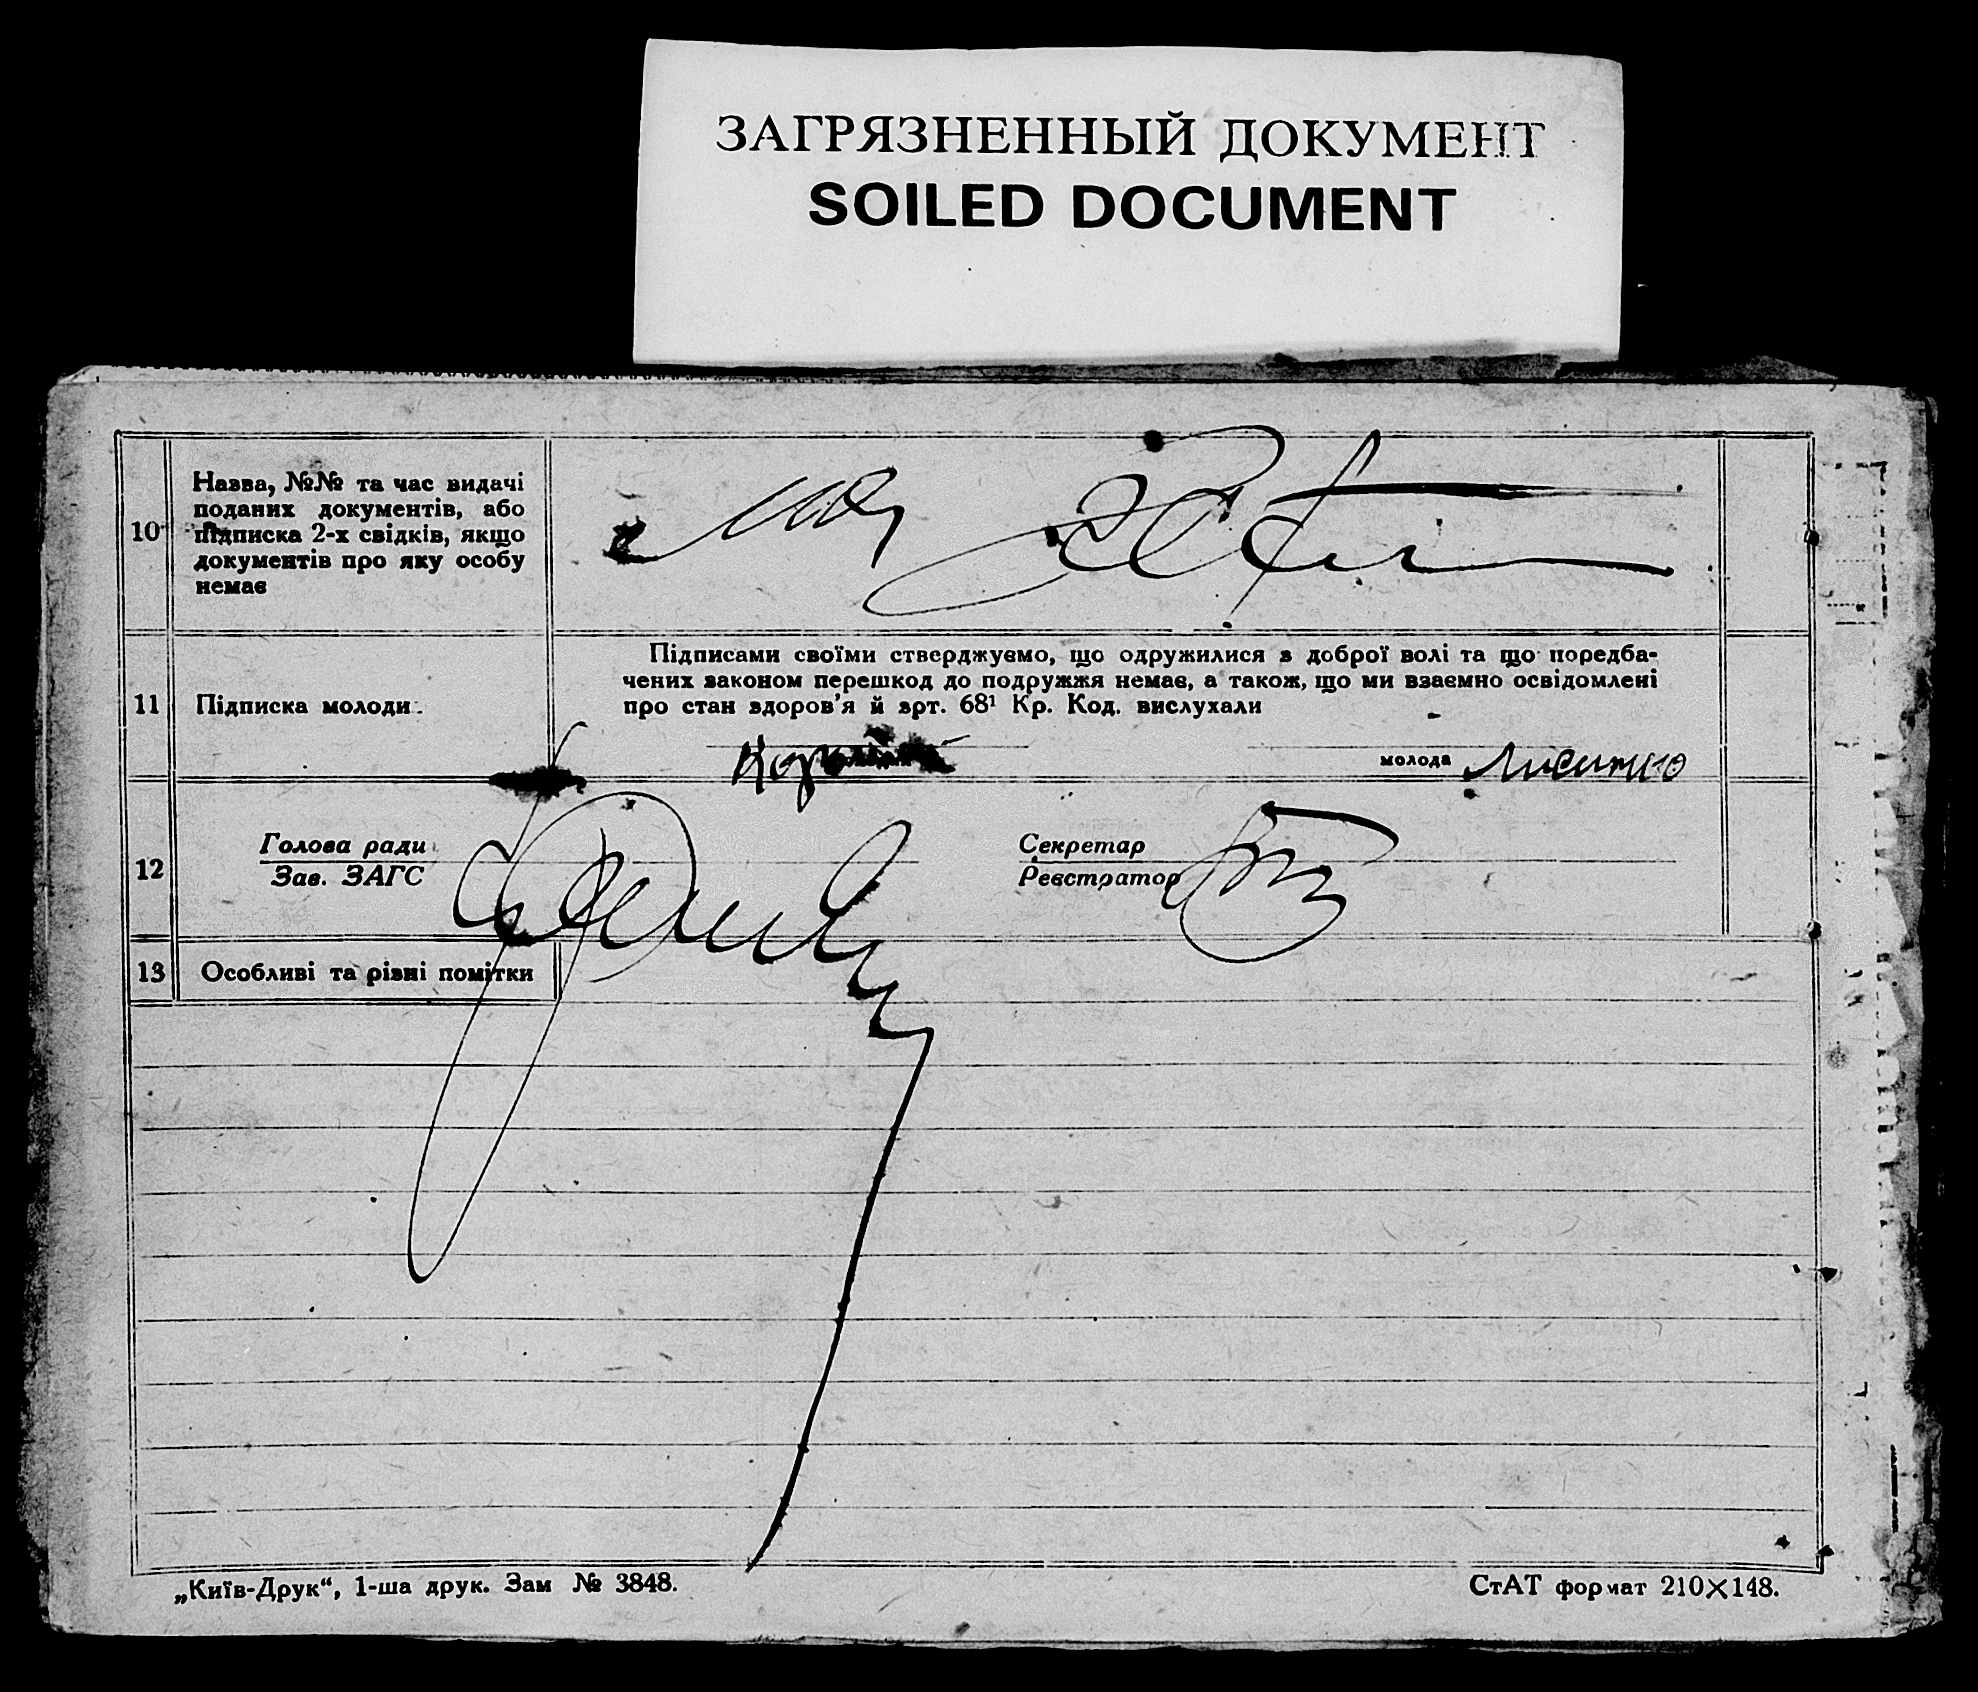 ЗАГРЯЗНЕННЫЙ ДОКУМЕНТ
SOILED DOCUMENT
10
Назва, №№ та час видачі
поданих документів, або
підписка 2-х свідків, якщо
документів про яку особу
немає
11
Підписка молодих
Підписами своїми стверджуємо, що одружилися з доброї волі та що поредба-
чених законом перешкод до подружжя немає, а також, що ми взаємно освідомлені
про стан здоров'я й арт. 68¹ Кр. Код. вислухали
молода
12
Голова ради
Зав. ЗАГС
Секретар
Реєстратор
13 Особливі та різні помітки
„Київ-Друк“, 1-ша друк. Зам № 3848.
СтАТ формат 210×148.